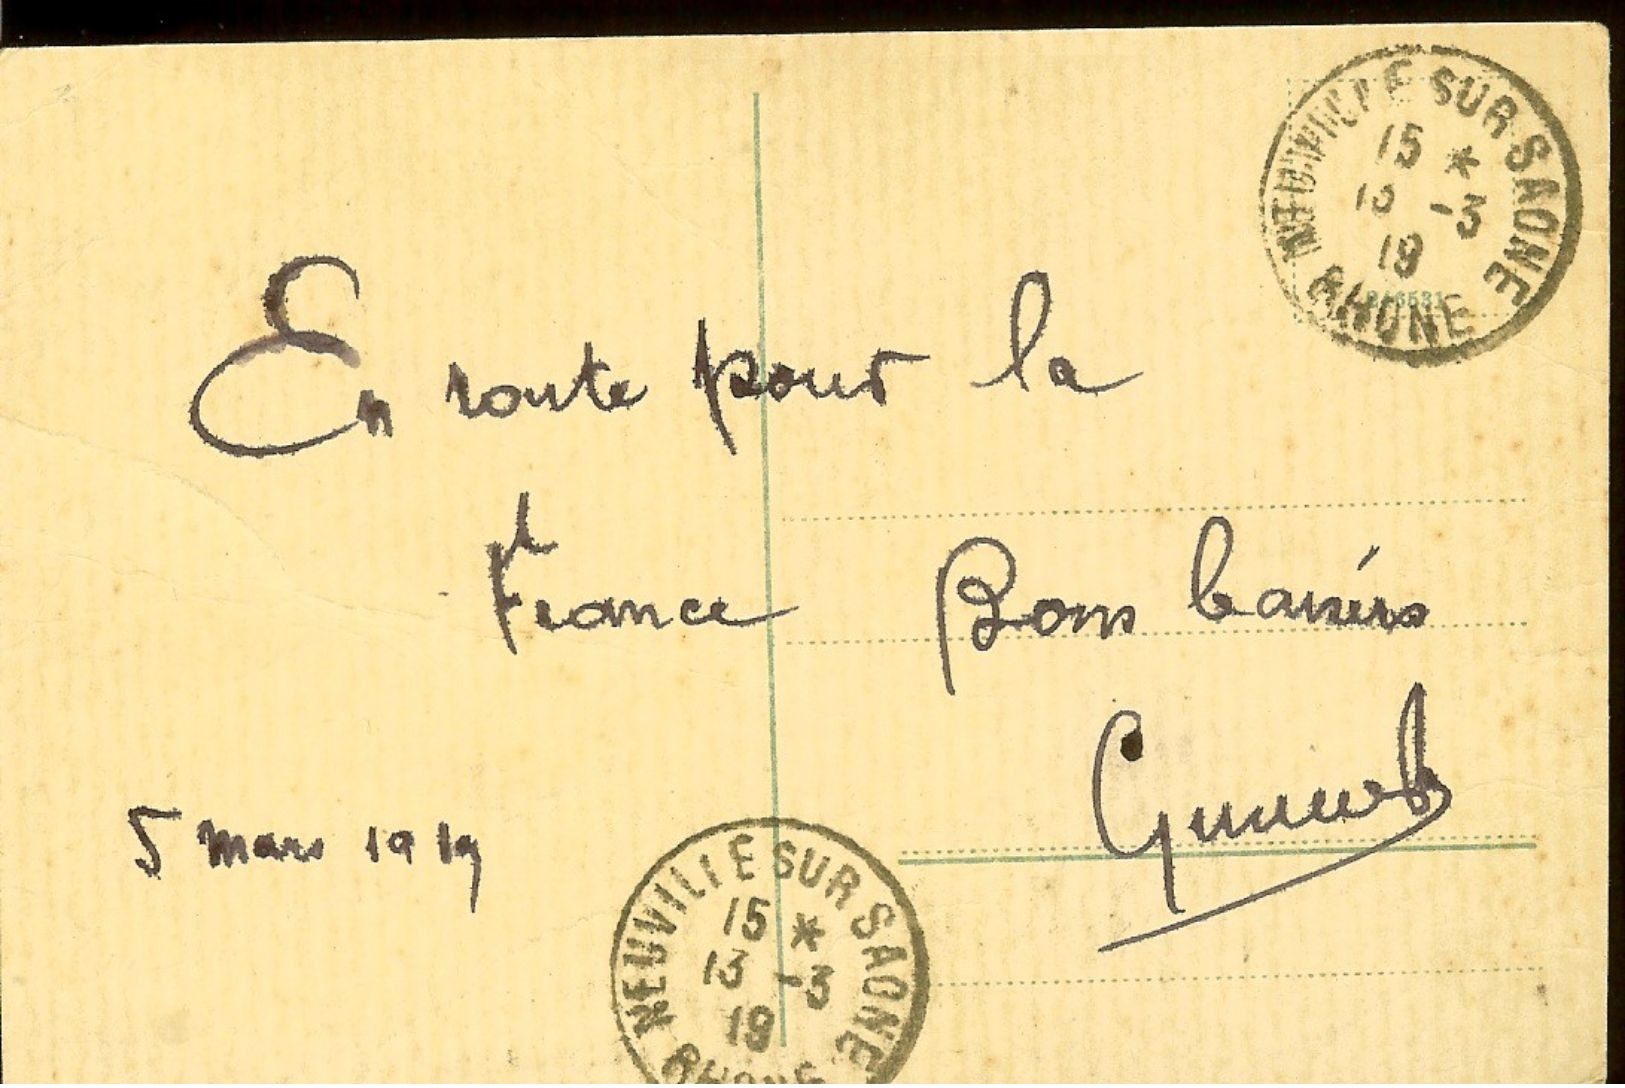 NEUVILLE SUR SAONE
15 *
13 -3
19
RHONE
En route pour la
France Bons baisers
5 mars 1919
NEUVILLE SUR SAONE
15 *
13 -3
19
RHONE